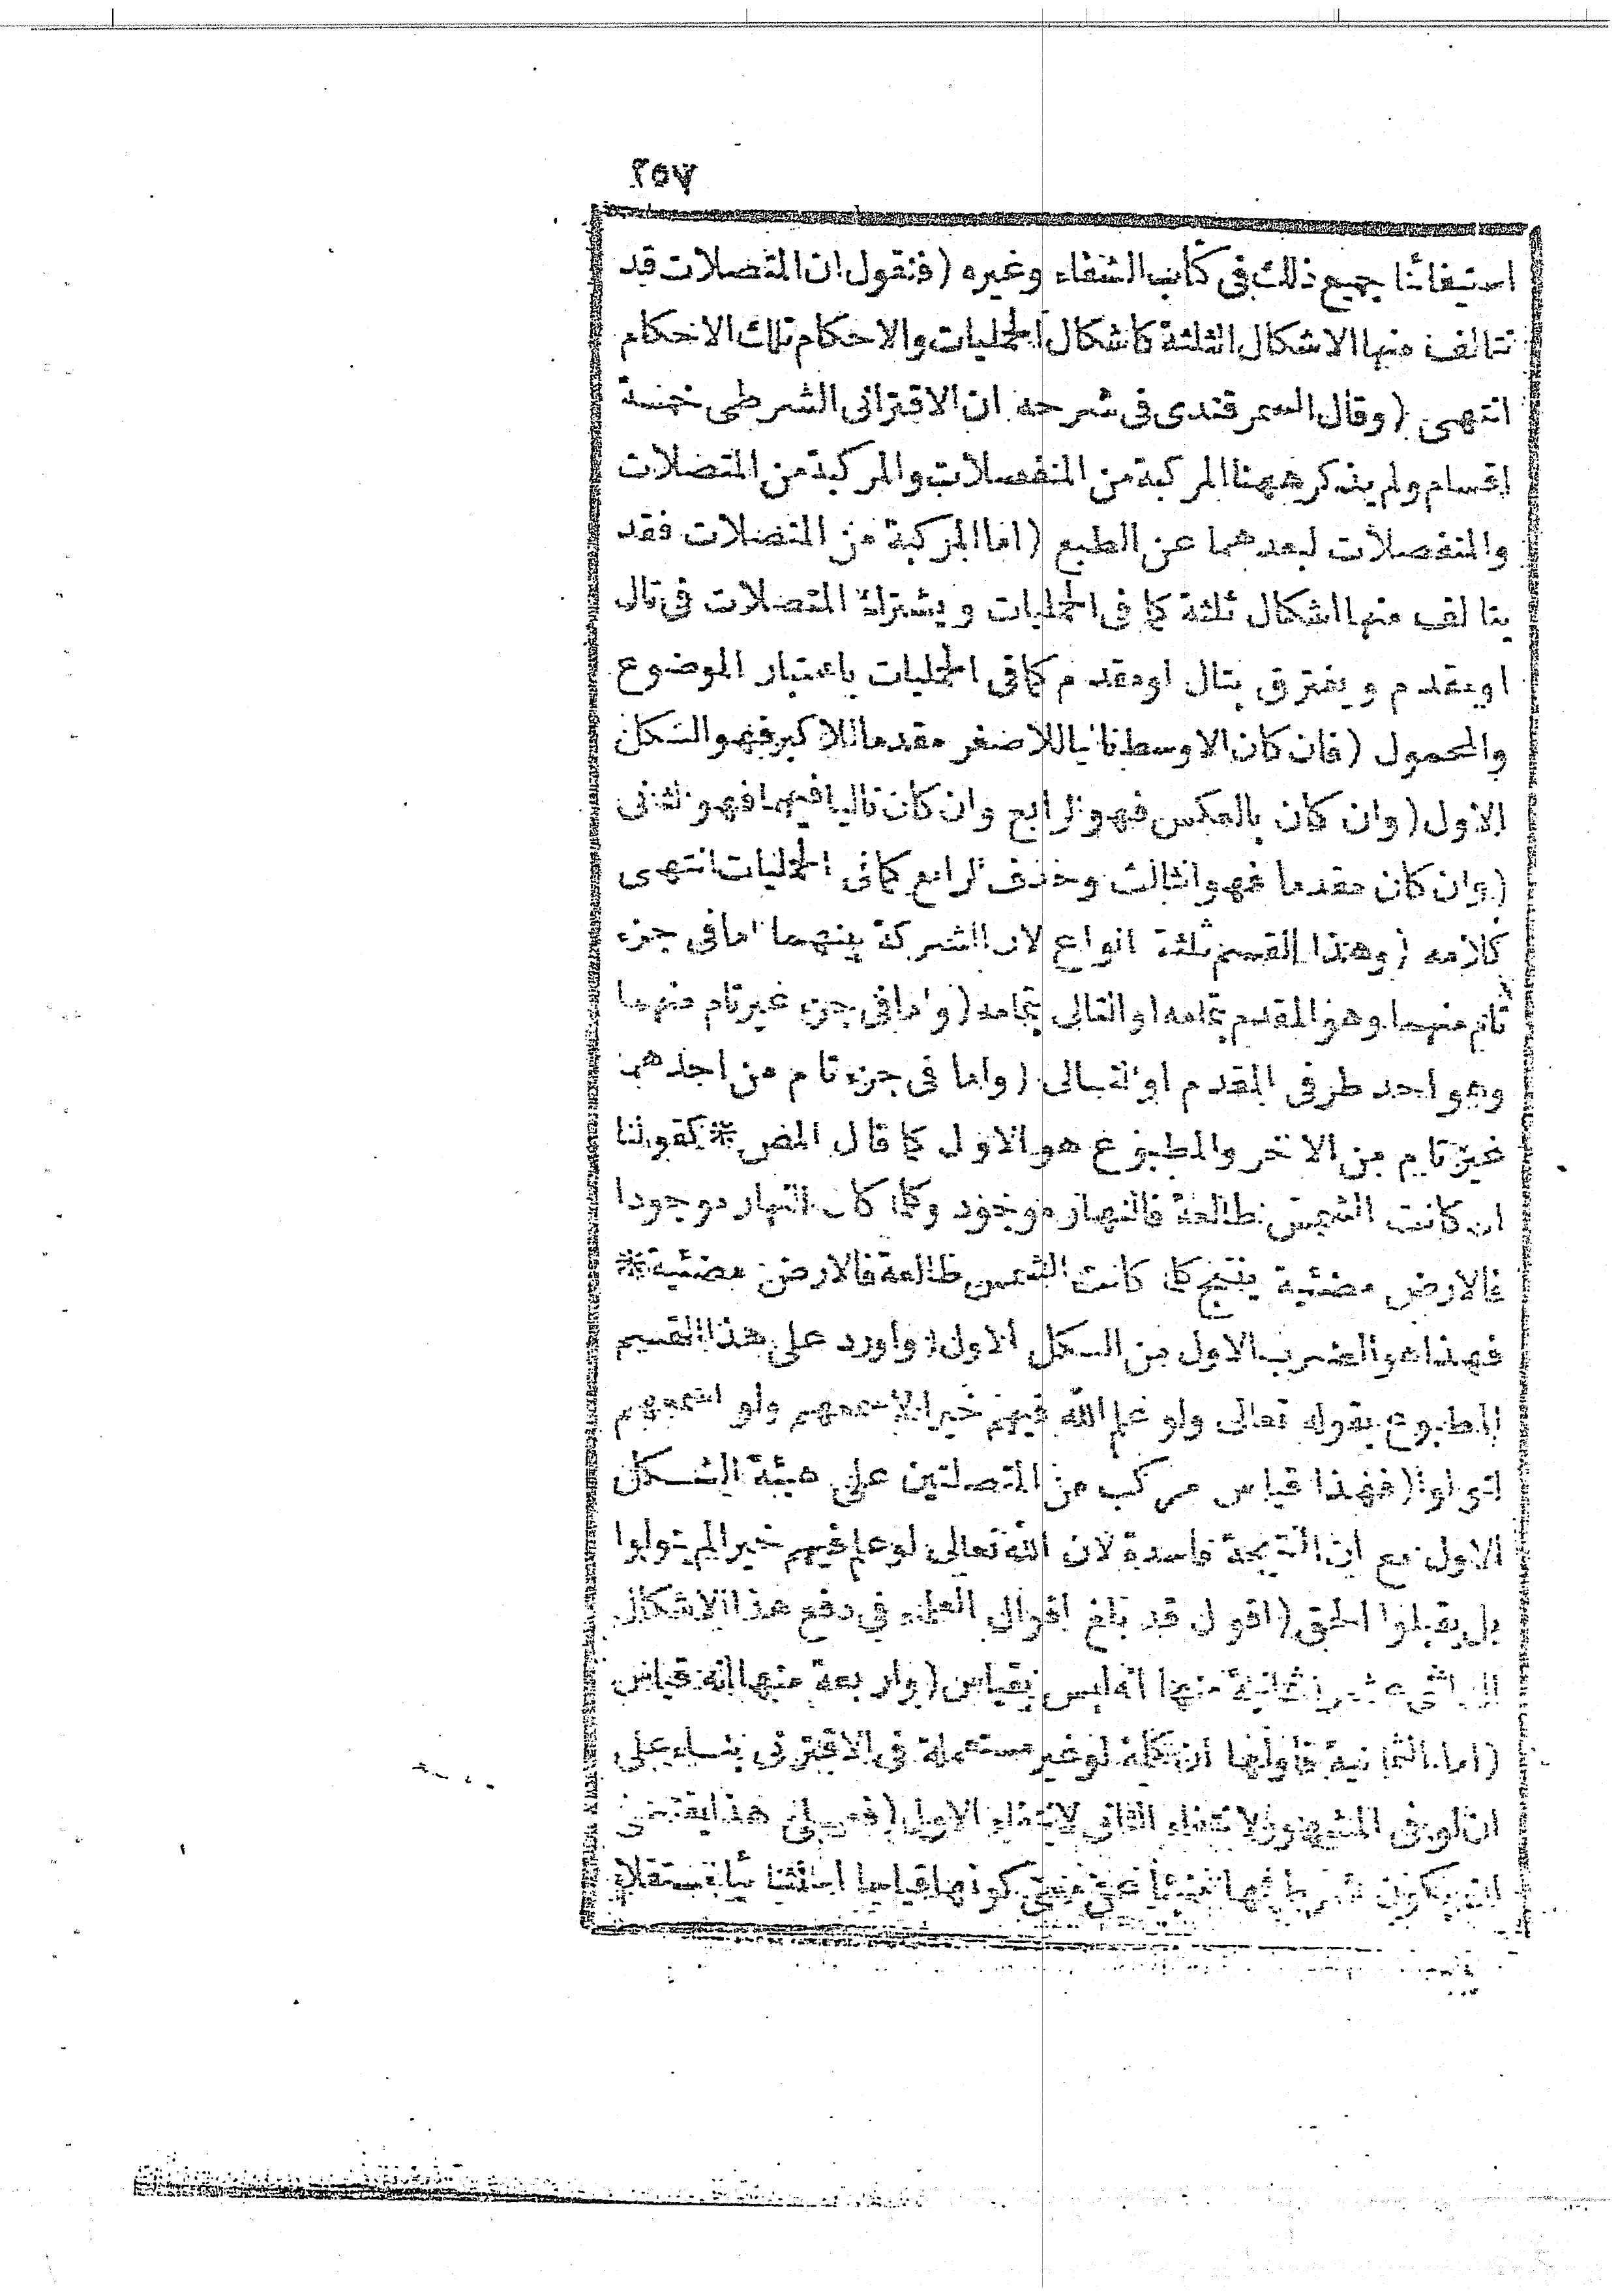 ٢٥٧
استيفائنا جميع ذلك فى كتاب الشفاء وغيره (فنقول ان المتصلات قد
تتألف منها الاشكال الثلثة كاشكال الحمليات والاحكام تلك الاحكام
انتهى (وقال السمرقندى فى شرحه ان الاقترانى الشرطى خمسة
اقسام ولم يذكر ههنا المركبة من المنفصلات والمركبة من المتصلات
والمنفصلات لبعدهما عن الطبع (اما المركبة من المتصلات فقد
يتالف منها اشكال ثلثة كما فى الحمليات ويشترك المتصلات فى تال
اوبمقدم ويفترق بتال اومقدم كما فى الحمليات باعتبار الموضوع
والمحمول (فان كان الاوسط تاليا للاصغر مقدما للاكبر فهو الشكل
الاول (وان كان بالعكس فهو الرابع وان كان تاليا فيهما فهو الثانى
(وان كان مقدما فهو الثالث وحذف الرابع كما فى الحمليات انتهى
كلامه (وهذا القسم ثلثة انواع لان الشركة بينهما اما فى جزء
تام منهما وهو المقدم بتمامه او التالى بتمامه (واما فى جزء غير تام منهما
وهو احد طرفى المقدم او التالى (واما فى جزء تام من احدهما
غير تام من الآخر والمطبوع هو الاول كما قال المص * كقولنا
ان كانت الشمس طالعة فالنهار موجود وكلما كان النهار موجودا
فالارض مضئية ينتج كلما كانت الشمس طالعة فالارض مضئية *
فهذا هو الضرب الاول من الشكل الاول (واورد على هذا القسم
المطبوع بقوله تعالى ولو علم الله فيهم خيرا لاسمعهم ولو اسمعهم
لتولوا (فهذا قياس مركب من المتصلتين على هيئة الشكل
الاول مع ان النتيجة فاسدة لان الله تعالى لو علم فيهم خيرا لم يتولوا
بل يقبلوا الحق (اقول قد بلغ اقوال العلماء فى دفع هذا الاشكال
الى اثنى عشر ثمانية منها انه ليس بقياس (واربعة منها انه قياس
(اما الثمانية فاولها ان كلمة لو غير مستعملة فى الاقترانى بناء على
ان لو فى المشهور لانتفاء الثانى لانتفاء الاول (فعلى هذا يقتضى
ان يكون كونها قياسا استثنائيا مستقلا